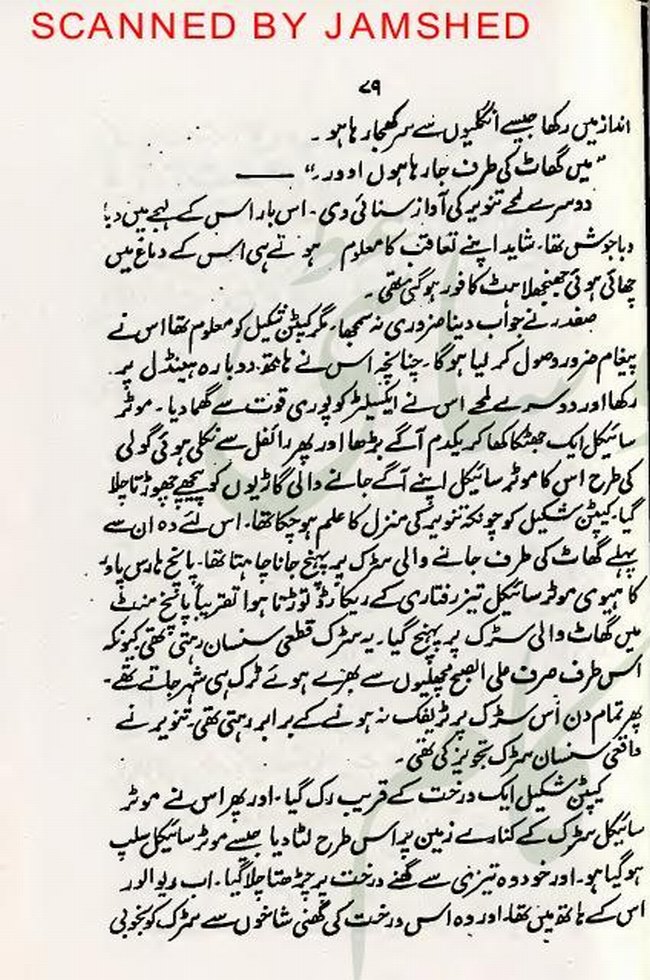 SCANNED BY JAMSHED
۷۹
انداز میں رکھا جیسے انگلیوں سے سر کھجا رہا ہو۔
"میں گھاٹ کی طرف جا رہا ہوں اوور۔"
دوسرے لمحے تنویر کی آواز سنائی دی۔ اس بار اس کے لہجے میں دبا
دبا جوش تھا۔ شاید اپنے تعاقب کا معلوم ہوتے ہی اس کے دماغ میں
چھائی ہوئی جھنجھلاہٹ کافور ہو گئی تھی۔
صفدر نے جواب دینا ضروری نہ سمجھا۔ مگر کیپٹن شکیل کو معلوم تھا اس نے
پیغام ضرور وصول کر لیا ہوگا۔ چنانچہ اس نے ہاتھ دوبارہ ہینڈل پر
رکھا اور دوسرے لمحے اس نے ایکسیلیٹر کو پوری قوت سے گھما دیا۔ موٹر
سائیکل ایک جھٹکا کھا کر یکدم آگے بڑھا اور پھر رائفل سے نکلی ہوئی گولی
کی طرح اس کا موٹر سائیکل اپنے آگے جانے والی گاڑیوں کو پیچھے چھوڑتا چلا
گیا۔ کیپٹن شکیل کو چونکہ تنویر کی منزل کا علم ہو چکا تھا۔ اس لئے وہ ان سے
پہلے گھاٹ کی طرف جانے والی سڑک پر پہنچ جانا چاہتا تھا۔ پانچ ہارس پاور
کا ہیوی موٹر سائیکل تیز رفتاری کے ریکارڈ توڑتا ہوا تقریباً پانچ منٹ
میں گھاٹ والی سڑک پر پہنچ گیا۔ یہ سڑک قطعی سنسان رہتی تھی کیونکہ
اس طرف صرف علی الصبح مچھلیوں سے بھرے ہوئے ٹرک ہی شہر جاتے تھے۔
پھر تمام دن اس سڑک پر ٹریفک نہ ہونے کے برابر رہتی تھی۔ تنویر نے
واقعی سنسان سڑک تجویز کی تھی۔
کیپٹن شکیل ایک درخت کے قریب رک گیا۔ اور پھر اس نے موٹر
سائیکل سڑک کے کنارے زمین پر اس طرح لٹا دیا جیسے موٹر سائیکل سلپ
ہو گیا ہو۔ اور خود وہ تیزی سے گھنے درخت پر چڑھتا چلا گیا۔ اب ریوالور
اس کے ہاتھ میں تھا۔ اور وہ اس درخت کی گھنی شاخوں سے سڑک کو بخوبی